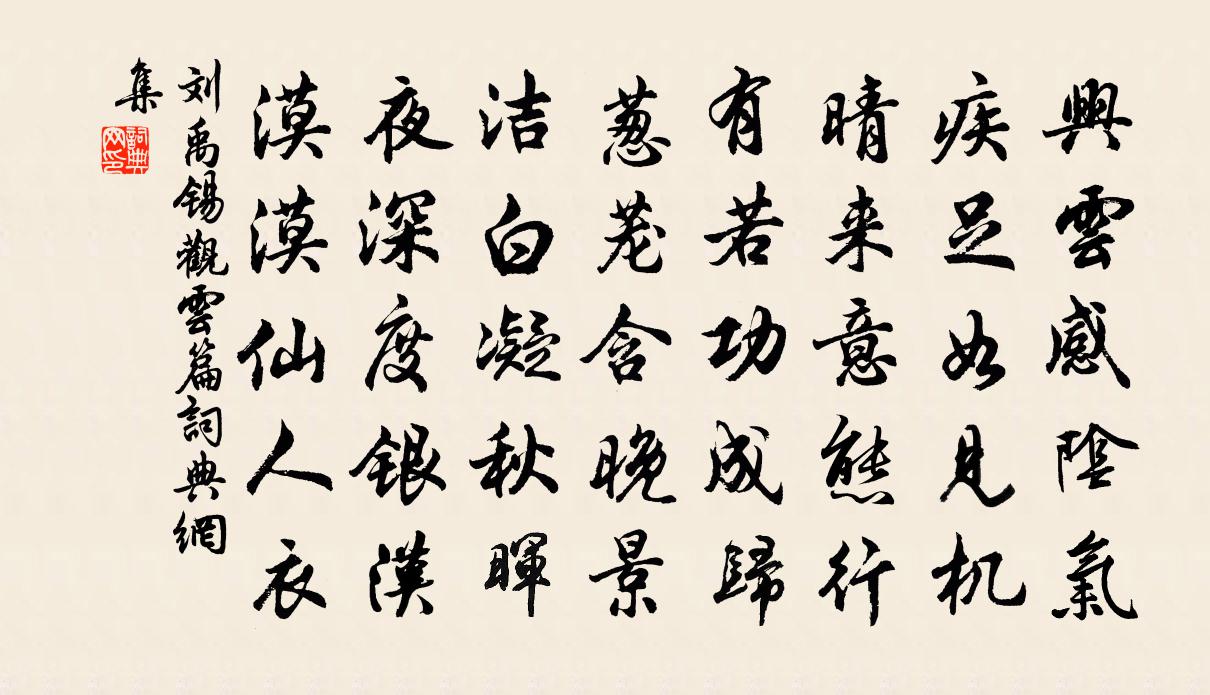 興雲感陰氣
疾足如見机
晴来意態行
有若功成歸
葱茏含晚景
洁白凝秋暉
夜深度銀漢
漠漠仙人衣
刘禹锡觀雲篇詞典網
集
詞典網印